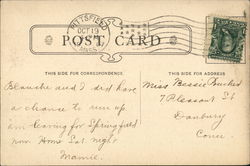 PITTSFIELD
OCT 19
MASS.
POST CARD
THIS SIDE FOR CORRESPONDENCE.
THIS SIDE FOR ADDRESS
Blanche and I did have
a chance to run up
am leaving for Springfield
now Home Sat. night
Mamie.
Miss Bessie
7 Pleasant St
Danbury
Conn.